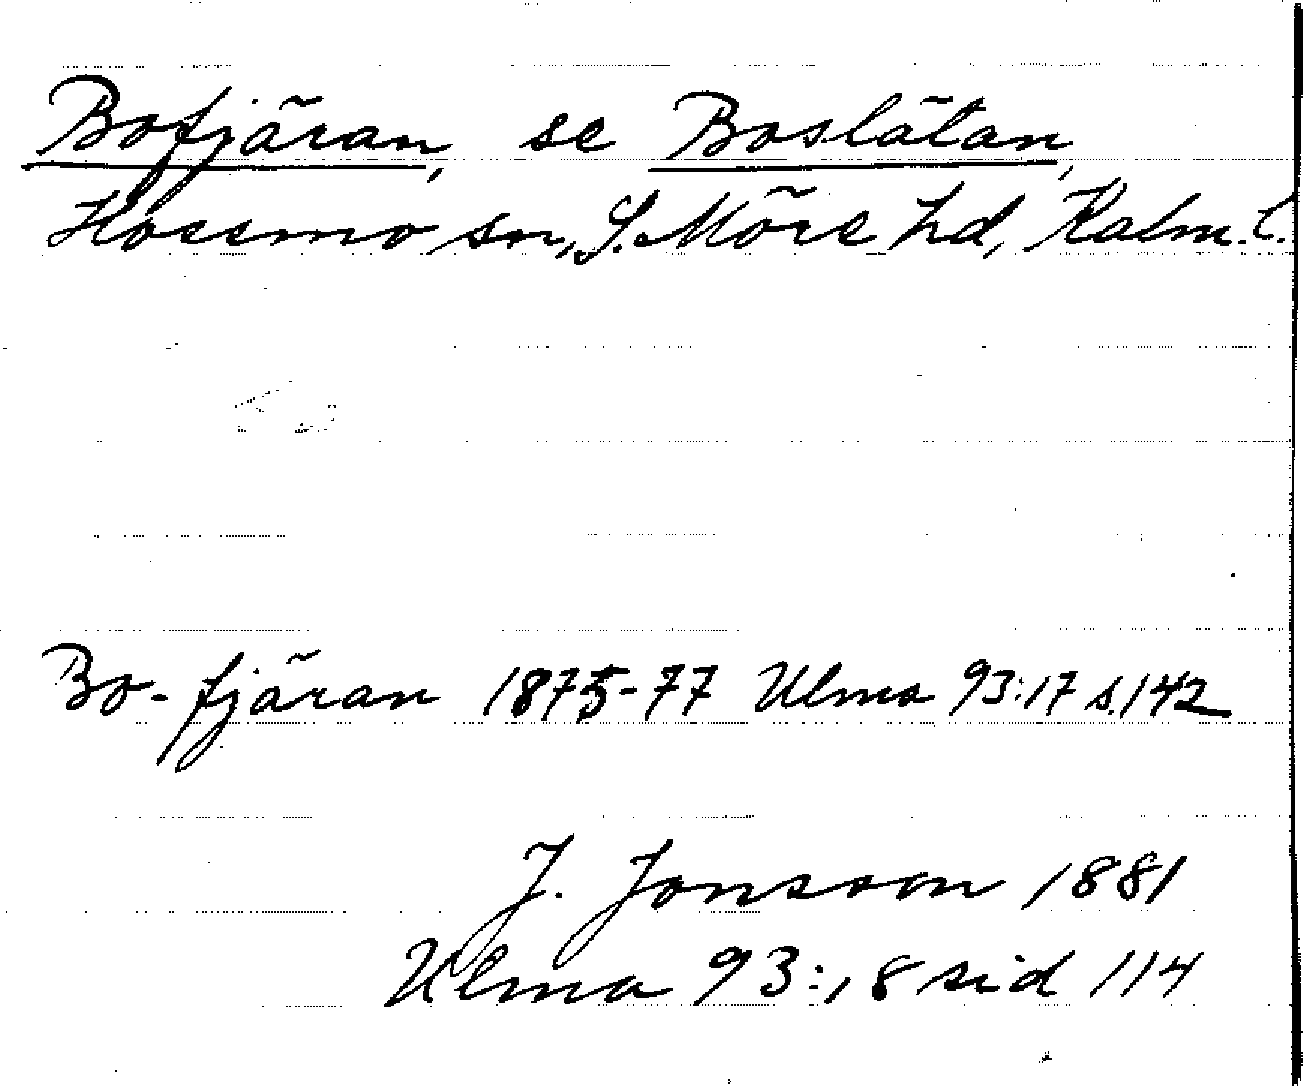 Bofjäran, se Boslätan,
Hossmo sn, S. Möre hd, Kalm. l.
Bo-fjäran 1875-77 Ulma 93:17 s. 142
J. Jonsson 1881
Ulma 93:18 sid 114